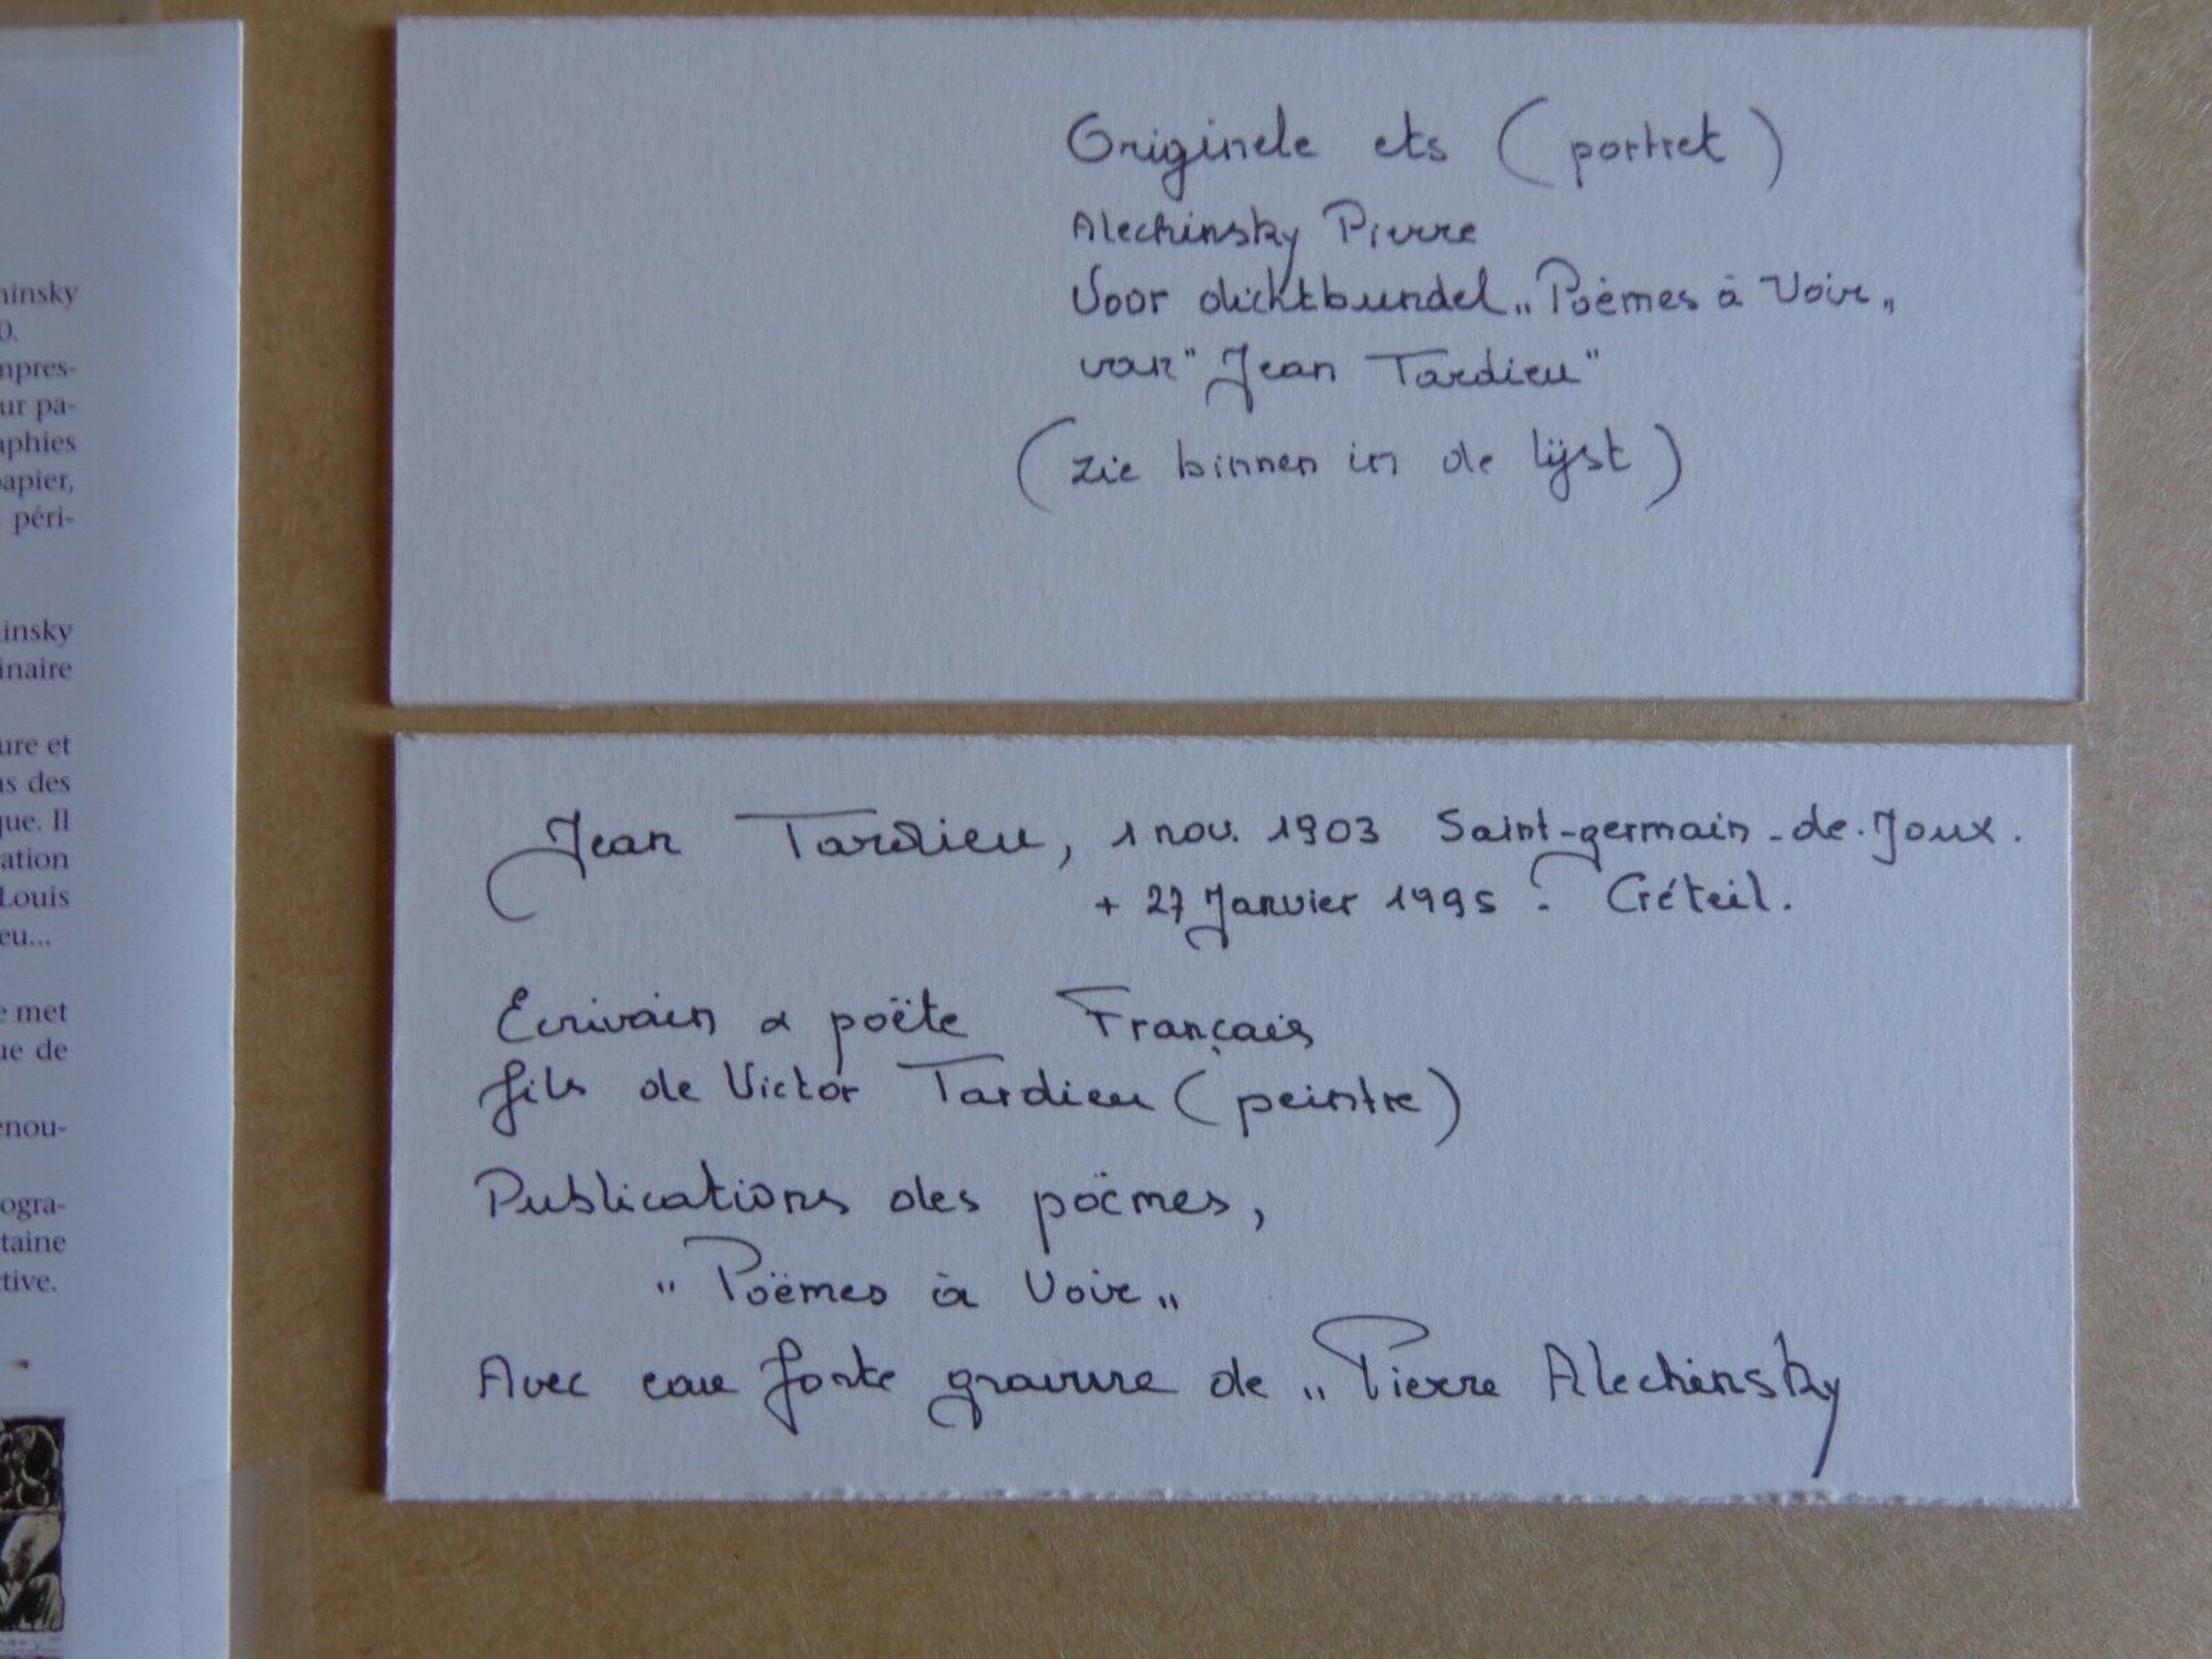 hinsky
0.
npres-
ur pa-
aphies
papier,
péri-
insky
inaire
ure et
ns des
que. Il
ation
Louis
eu...
e met
ue de
enou-
ogra-
taine
tive.
Originele ets (portret)
Alechinsky Pierre
Voor dichtbundel „Poèmes à Voir„
van "Jean Tardieu"
(zie binnen in de lijst)
Jean Tardieu, 1 nov. 1903 Saint-germain-de-Joux.
+ 27 Janvier 1995 : Créteil.
Ecrivain & poëte Français
fils de Victor Tardieu (peintre)
Publications des poëmes,
„Poëmes à Voir„
Avec eau forte gravure de „Pierre Alechinsky